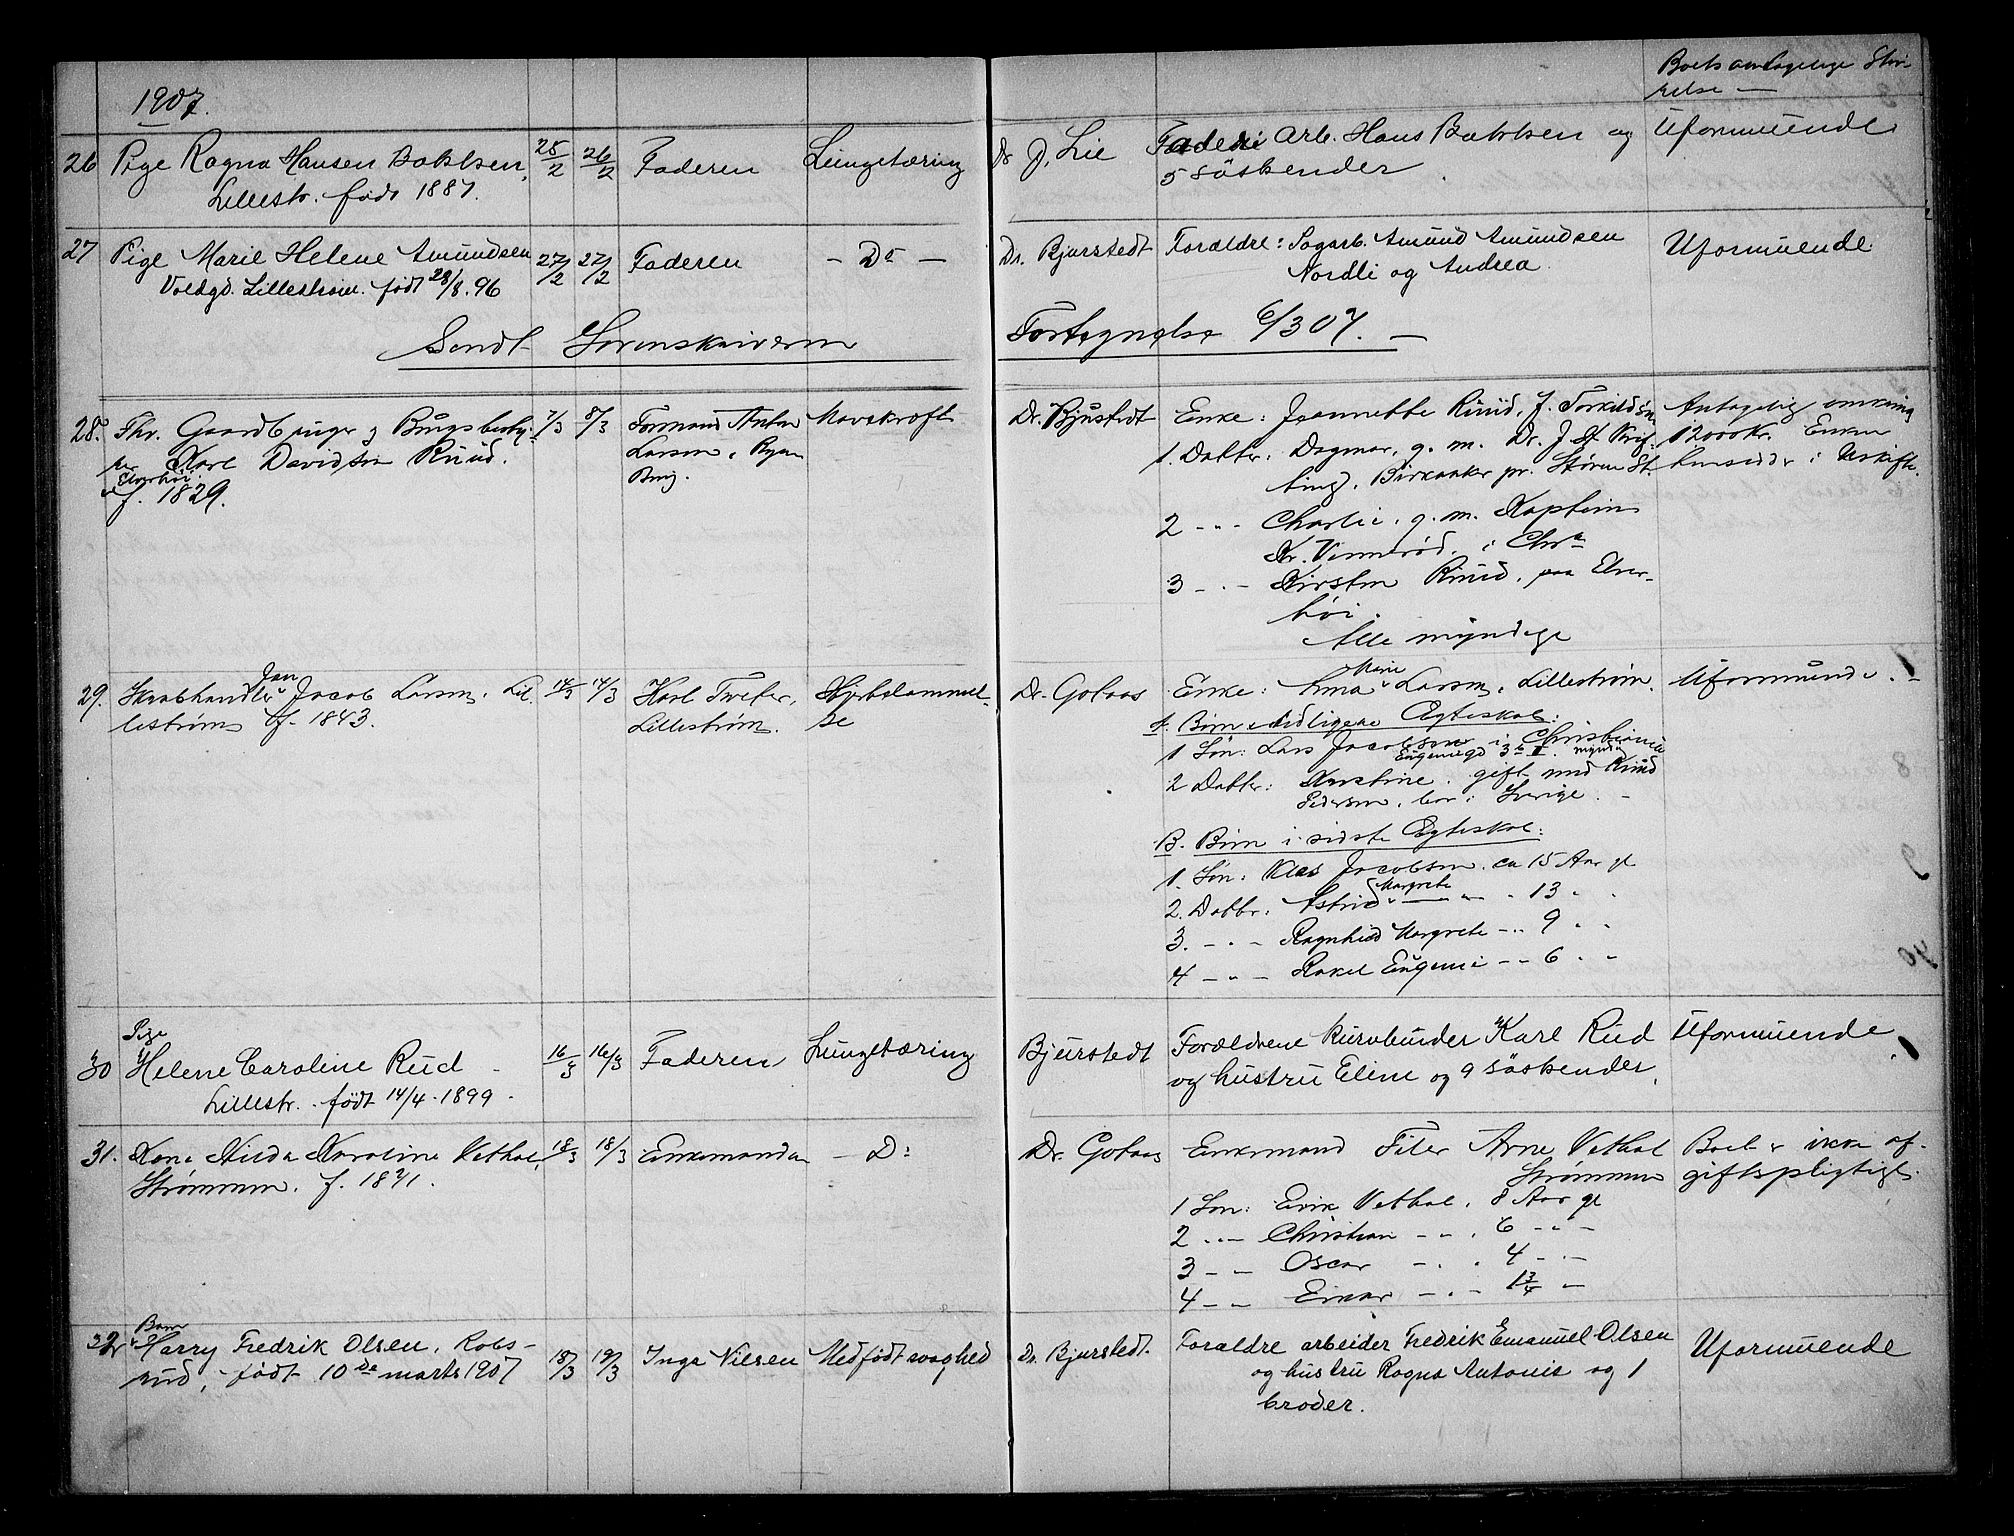 1907.
Boets antagelige Stør-
relse —
26 Pige Ragna Hansen
Lillestr. født 1887.
25/2 26/2 Faderen Lungetæring
Dr J. Lie Arb. Hans og
5 søskender
Uformuende
27 Pige Marie Helene Amundsen
Voldgd. Lillestrøm. født 28/8.96
27/2 27/2 Faderen – Do –
Dr. Bjurstedt Forældre: Sagarb. Amund Amundsen
Nordli og Andrea.
Uformuende
Sendt Sorenskriveren Fortegnelse 6/3 07. —
28. Fhv. Gaardbruger og Brugsbesty-
rer Karl Davidsen Ruud.
Elverhøi
f. 1829.
7/3 8/3 Formand Anton
Larsen,
Brug.
Mavekræft
Dr. Bjustedt Enke: Jeannette Ruud, f. Torkildsen
1. Datter: Dagmar, g. m. Dr. J. St.
Birkaaker pr. Støren St.
2 - - - Charlie, g. m. Kaptein
Kr. Vinnerød, i Chra
3 - - - Kirsten Ruud, paa Elver-
høi.
Alle myndige
Antagelig omkring
12000 Kr. Enken
hensidder i Uskifte.
29. Jan Jacob Larsen, Lil-
lestrøm f. 1843.
14/3 14/3 Karl Tveter,
Lillestrøm.
Dr. Gotaas Enke: Marie Larsen, Lillestrøm.
Uformuende. –
A. Børn i tidligere Ægteskab:
1 Søn: Lars Jacobsen i Christiania
Eugeniegd 3 myndig
2 Datter: Kirstine. gift med Knud
Pedersen, bor i Sverige. –
B. Børn i sidste Ægteskab:
1. Søn: Klas Jacobsen. ca 15 Aar gl
2. Datter: Astrid Margrete — - - 13 - -
3. - - - Ragnhild Margrete - - 9 - -
4 - - - Rakel Eugenie - - 6 - -
30 Pige
Helene Caroline Rud
Lillestr. født 14/4. 1899.
16/3 16/3 Faderen Lungetæring
Bjurstedt Forældrene Kurvbinder Karl Rud
og hustru Eline og 9 søskender.
Uformuende
31. Kone Hilda Karoline Vethal,
Strømmen. f. 1871.
18/3 18/3 Enkemanden – Do
Dr. Gotaas Enkemand Filer Arne Vethal
Strømmen
1 Søn: Erik Vethal, 8 Aar gl
2 - - - Christian - - . 6 - - -
3 - - Oscar - . . 4 - . -
4 - - Einar - . - 1 3/4 -
Boet er ikke af-
giftspligtigt.
32 Barn
Harry Fredrik Olsen, Robs-
rud, født 10de marts 1907
18/3 19/3 Inga Nilsen Medfødt svaghed
Dr. Bjurstedt. Forældre arbeider Fredrik Emanuel Olsen
og hustru Ragna Antonie og 1
broder.
Uformuende